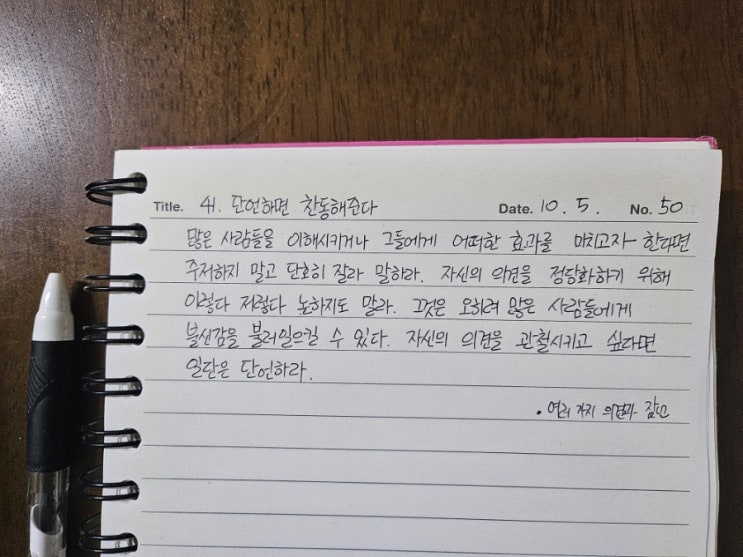 Title. 41. 단언하면 찬동해준다 Date. 10. 5. No. 50
많은 사람들을 이해시키거나 그들에게 어떠한 효과를 미치고자 한다면
주저하지 말고 단호히 잘라 말하라. 자신의 의견을 정당화하기 위해
이렇다 저렇다 논하지도 말라. 그것은 오히려 많은 사람들에게
불신감을 불러일으킬 수 있다. 자신의 의견을 관철시키고 싶다면
일단은 단언하라.
• 여러 가지 의견과 잠언